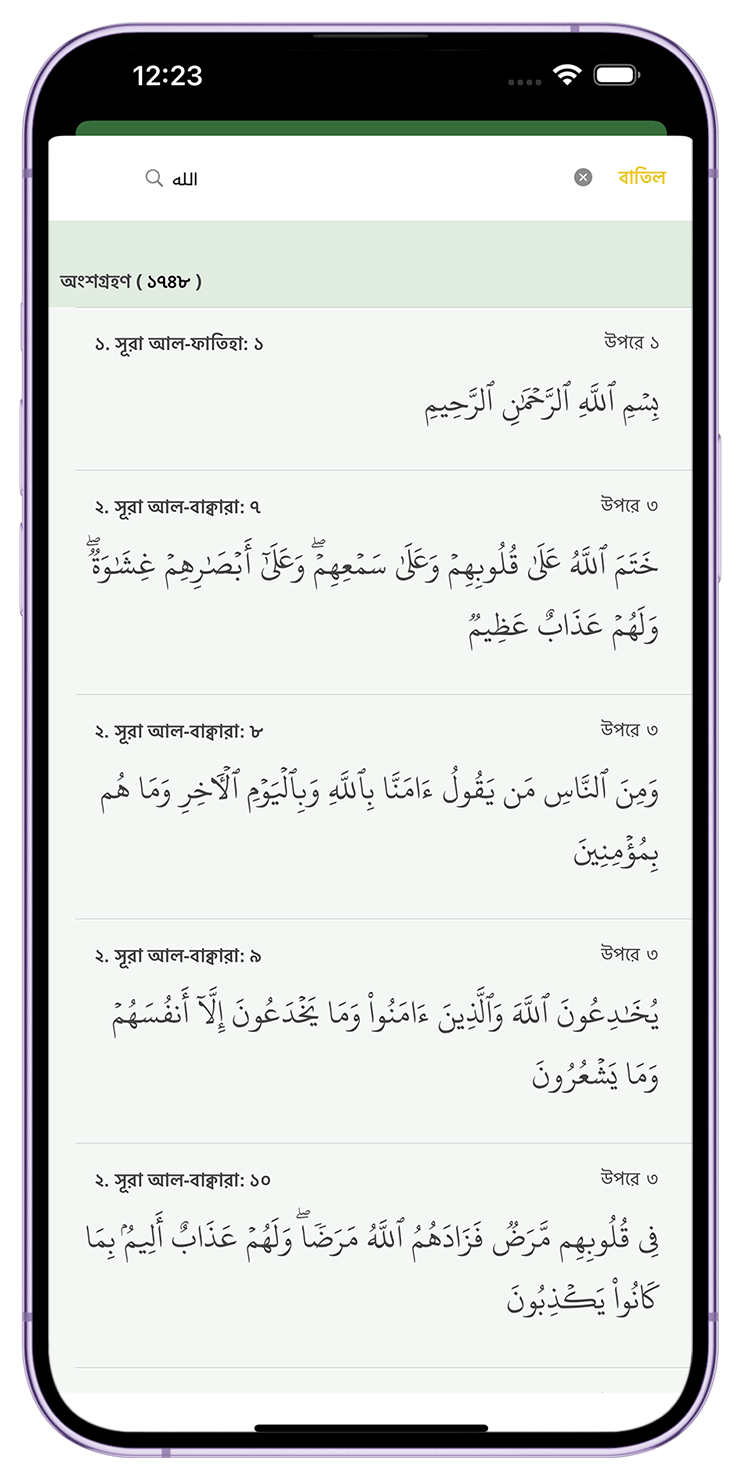 12:23
الله
বাতিল
অংশগ্রহণ ( ১৭৪৮ )
১. সূরা আল-ফাতিহা: ১
উপরে ১
بِسۡمِ ٱللَّهِ ٱلرَّحۡمَٰنِ ٱلرَّحِيمِ
২. সূরা আল-বাক্বারা: ৭
উপরে ৩
خَتَمَ ٱللَّهُ عَلَىٰ قُلُوبِهِمۡ وَعَلَىٰ سَمۡعِهِمۡۖ وَعَلَىٰٓ أَبۡصَٰرِهِمۡ غِشَٰوَةٞۖ
وَلَهُمۡ عَذَابٌ عَظِيمٞ
২. সূরা আল-বাক্বারা: ৮
উপরে ৩
وَمِنَ ٱلنَّاسِ مَن يَقُولُ ءَامَنَّا بِٱللَّهِ وَبِٱلۡيَوۡمِ ٱلۡأٓخِرِ وَمَا هُم
بِمُؤۡمِنِينَ
২. সূরা আল-বাক্বারা: ৯
উপরে ৩
يُخَٰدِعُونَ ٱللَّهَ وَٱلَّذِينَ ءَامَنُواْ وَمَا يَخۡدَعُونَ إِلَّآ أَنفُسَهُمۡ
وَمَا يَشۡعُرُونَ
২. সূরা আল-বাক্বারা: ১০
উপরে ৩
فِي قُلُوبِهِم مَّرَضٞ فَزَادَهُمُ ٱللَّهُ مَرَضٗاۖ وَلَهُمۡ عَذَابٌ أَلِيمُۢ بِمَا
كَانُواْ يَكۡذِبُونَ